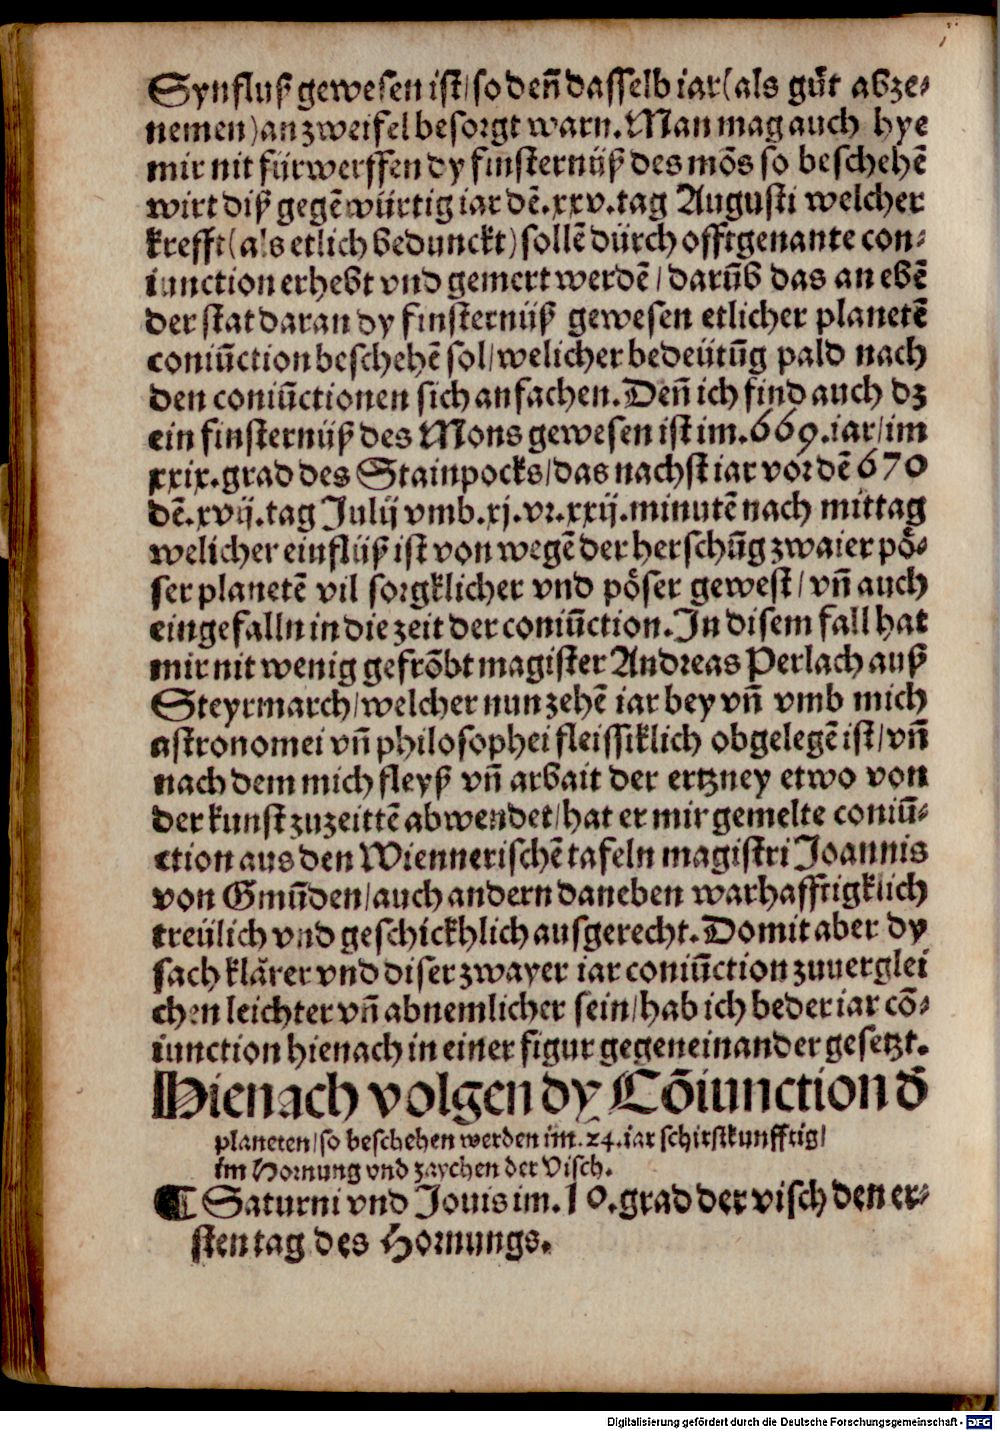 Synfluß gewesen ist/so deñ dasselb iar(als gůt abze⸗
nemen)an zweifel besorgt warn. Man mag auch hye
mir nit fürwerffen dy finsternüß des mõs so beschehẽ
wirt diß gegẽwürtig iar dẽ.xxv.tag Augusti welcher
krefft(als etlich bedunckt)sollẽ dürch offtgenante con⸗
iunction erhebt vnd gemert werdẽ/darũb das an ebẽ
der stat daran dy finsternüß gewesen etlicher planetẽ
coniũction beschehẽ sol/welicher bedeütũg pald nach
den coniũctionen sich anfachen. Deñ ich find auch dz
ein finsternüß des Mons gewesen ist im.669.iar/im
xxix.grad des Stainpocks/das nachst iar vor dẽ 670
dẽ.xvij.tag Julij vmb.xj.vr.xxij.minutẽ nach mittag
welicher einflüß ist von wegẽ der herschũg zwaier pö⸗
ser planetẽ vil sorgklicher vnd pöser gewest/vñ auch
eingefalln in die zeit der coniũction. In disem fall hat
mir nit wenig gefrõbt magister Andreas Perlach auß
Steyrmarch/welcher nun zehẽ iar bey vñ vmb mich
astronomei vñ philosophei fleissiklich obgelegẽ ist/vñ
nach dem mich fleyß vñ arbait der ertzney etwo von
der kunst zuzeittẽ abwendet/hat er mir gemelte coniũ⸗
ction aus den Wiennerischẽ tafeln magistri Joannis
von Gmũden/auch andern daneben warhafftigklich
treülich vnd geschickhlich ausgerecht. Domit aber dy
sach klärer vnd diser zwayer iar coniũction zuuerglei
chen leichter vñ abnemlicher sein/hab ich beder iar cõ⸗
iunction hienach in einer figur gegeneinander gesetzt.
Hienach volgen dy Cõiunction d̄
planeten/so beschehen werden im.24.iar schirstkunfftig/
im Hornung vnd zaychen der Visch.
¶ Saturni vnd Jouis im.10.grad der visch den er⸗
sten tag des Hornungs.
Digitalisierung gefördert durch die Deutsche Forschungsgemeinschaft - DFG